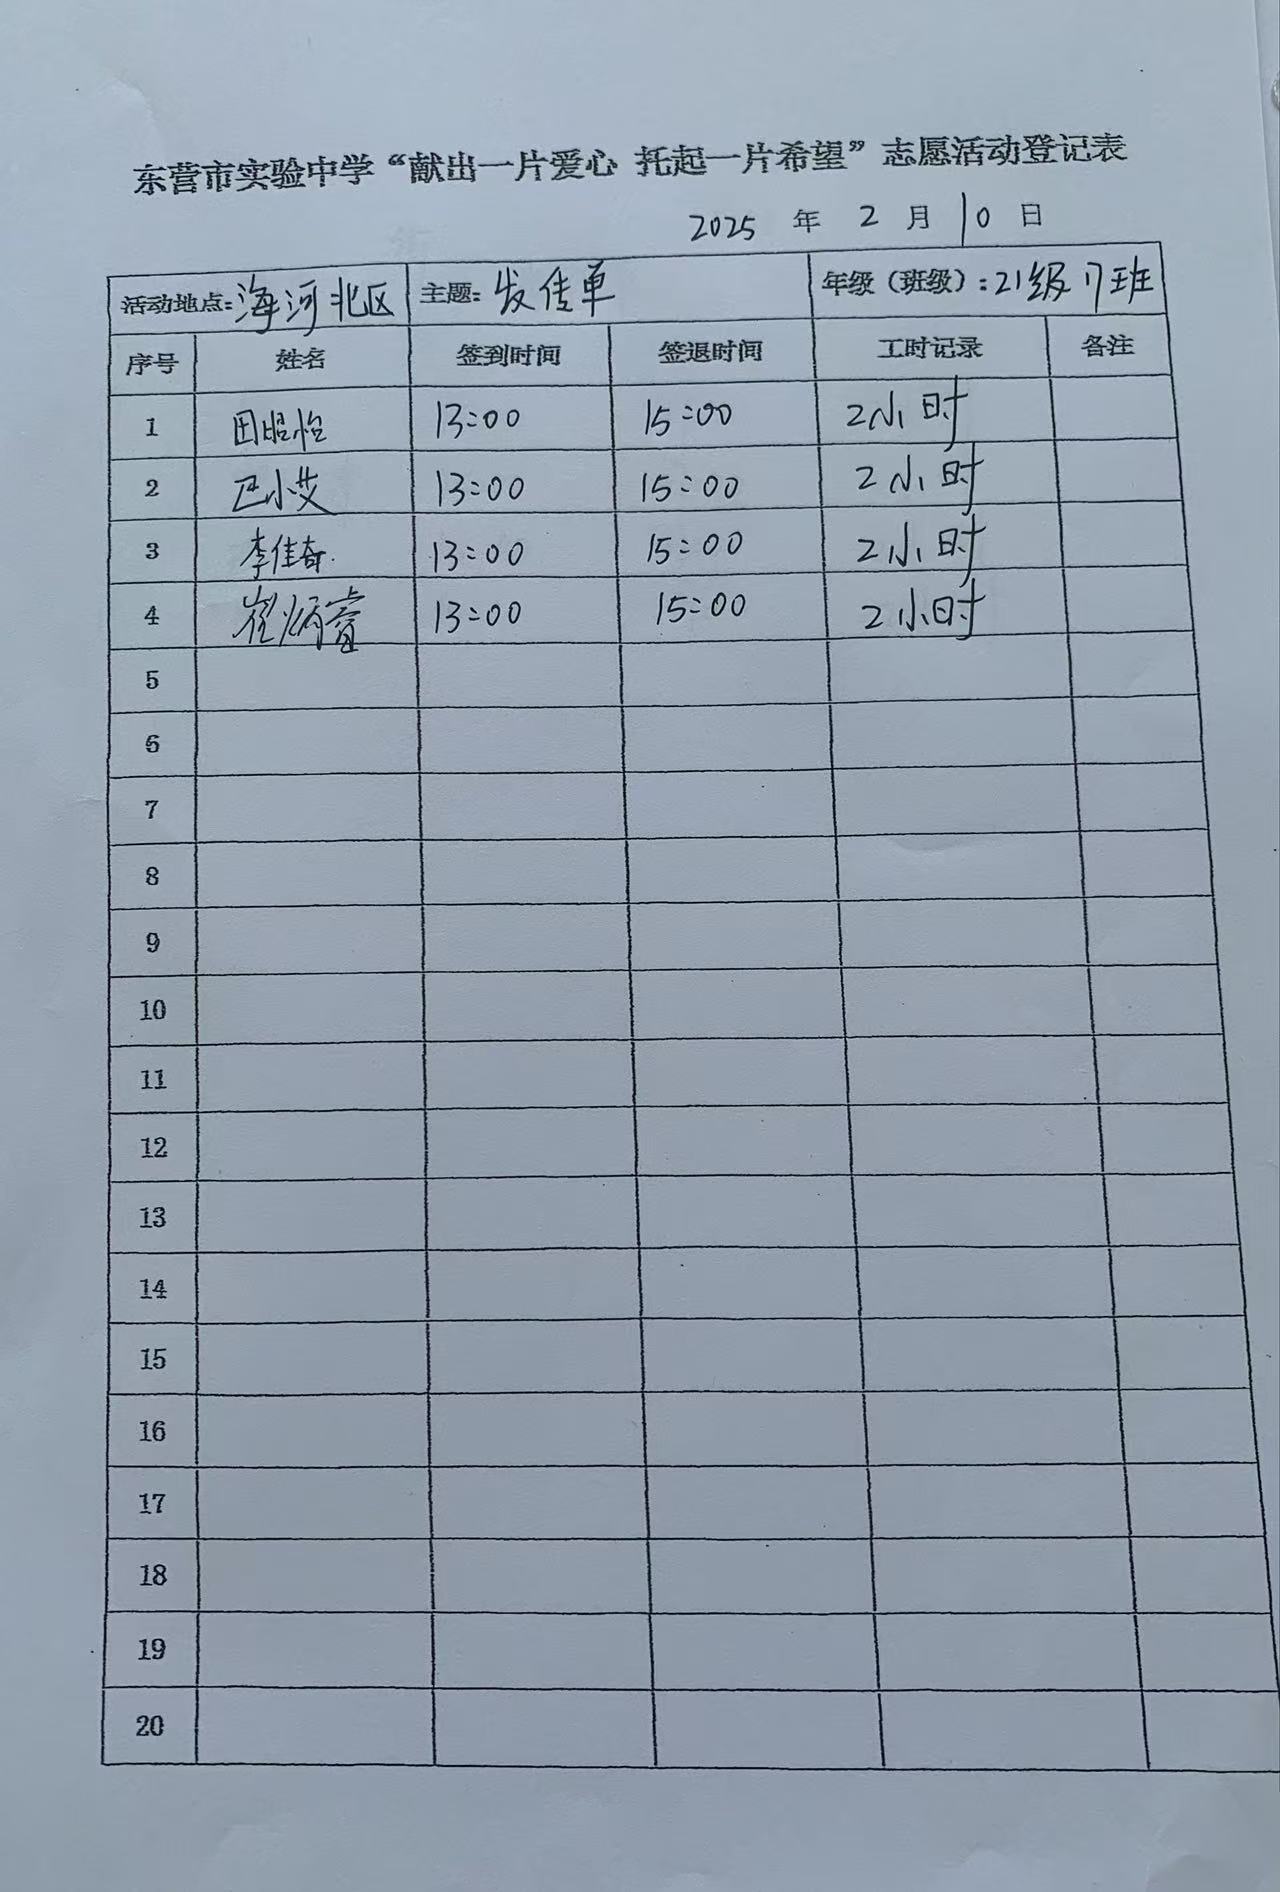 东营市实验中学“献出一片爱心 托起一片希望”志愿活动登记表
2025 年 2 月 10 日
活动地点:海河北区 主题:发传单 年级（班级）:21级17班
序号 姓名 签到时间 签退时间 工时记录 备注
1 田昭怡 13:00 15:00 2小时
2 巴小艾 13:00 15:00 2小时
3 李佳奇 13:00 15:00 2小时
4 崔炳睿 13:00 15:00 2小时
5
6
7
8
9
10
11
12
13
14
15
16
17
18
19
20